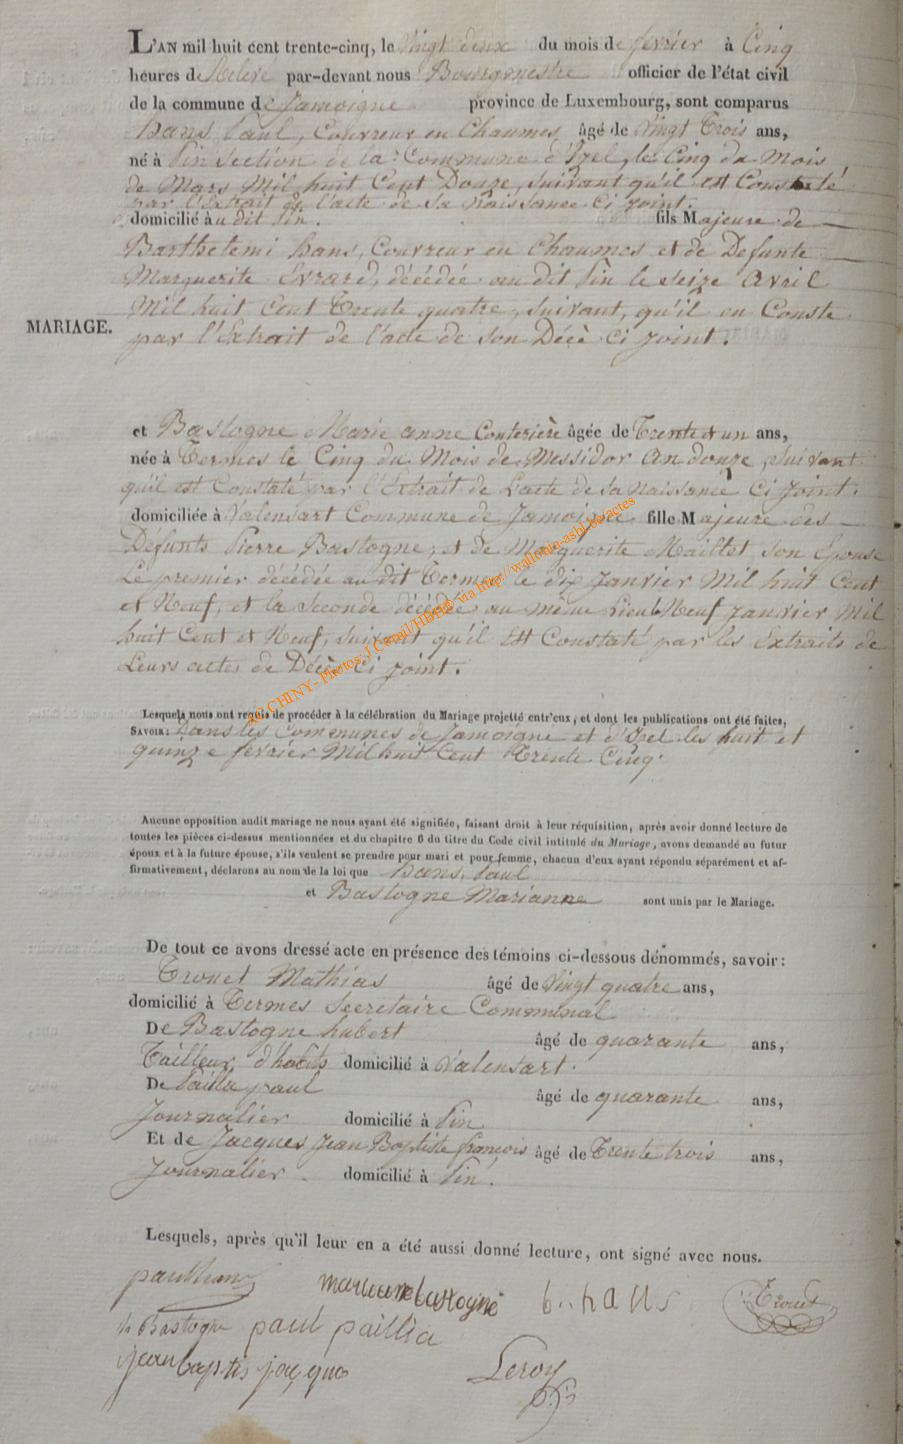 L'AN mil huit cent trente-cinq, le vingt deux du mois de fevrier à Cinq
heures de Relevé par-devant nous Bourgmestre officier de l'état civil
de la commune de Jamoigne province de Luxembourg, sont comparus
hans Paul, Couvreur en Chaumes, âgé de vingt Trois ans,
né à Pin Section de la Commune d'Izel, le Cinq du Mois
de Mars Mil huit Cent Douze, suivant qu'il est Constaté
par l'Extrait de l'acte de sa Naissance Ci joint.
domicilié àu dit Pin. fils Majeure de
Barthelemi hans, Couvreur en Chaumes et de Defunte
Marguerite Evrard, décédée au dit Pin le seize Avril
Mil huit Cent Trente quatre, suivant, qu'il en Conste
MARIAGE.
par l'Extrait de l'acte de son Décè Ci joint.
et Bastogne Marie anne Couterière âgée de Trente et un ans,
née à Termes le Cinq du Mois de Messidor An douze, suivant
qu'il est Constaté par l'Extrait de Lacte de sa Naissance Ci joint.
domiciliée à Valensart Commune de Jamoigne fille Majeure des
Defunts Pierre Bastogne, et de Marguerite Maillet, son Epouse
Le premier décédée au dit Termes le dix Janvier Mil huit Cent
et Neuf, et la Seconde décédée au même Lieu le Neuf Janvier Mil
huit Cent et Neuf, suivant qu'il est Constaté par les Extraits de
Leurs actes de Décès Ci joint.
AC CHINY - Photos: J.Cougil/HBHB via http://wallonia-asbl.be/actes
Lesquels nous ont requis de procéder à la célébration du Mariage projetté entr'eux, et dont les publications ont été faites,
SAVOIR: Dans les Communes de Jamoigne et d'Izel les huit et
quinze fevrier Mil huit Cent Trente Cinq.
Aucune opposition audit mariage ne nous ayant été signifiée, faisant droit à leur réquisition, après avoir donné lecture de
toutes les pièces ci-dessus mentionnées et du chapitre 6 du titre du Code civil intitulé du Mariage, avons demandé au futur
époux et à la future épouse, s'ils veulent se prendre pour mari et pour femme, chacun d'eux ayant répondu séparément et af-
firmativement, déclarons au nom de la loi que hans, Paul
et Bastogne Marianne sont unis par le Mariage.
De tout ce avons dressé acte en présence des témoins ci-dessous dénommés, savoir:
Tronet Mathias âgé de vingt quatre ans,
domicilié à Termes Secretaire Communal
De Bastogne hubert âgé de quarante ans,
Tailleur d'habits domicilié à Valensart.
De Pailla paul âgé de quarante ans,
Journalier domicilié à Pin
Et de Jacques Jean Baptiste françois âgé de Trente trois ans,
Journalier domicilié à Pin.
Lesquels, après qu'il leur en a été aussi donné lecture, ont signé avec nous.
paul hans marianne bastogne b. hans Tronet
h Bastogne paul paillia
jean baptis jacque Leroy